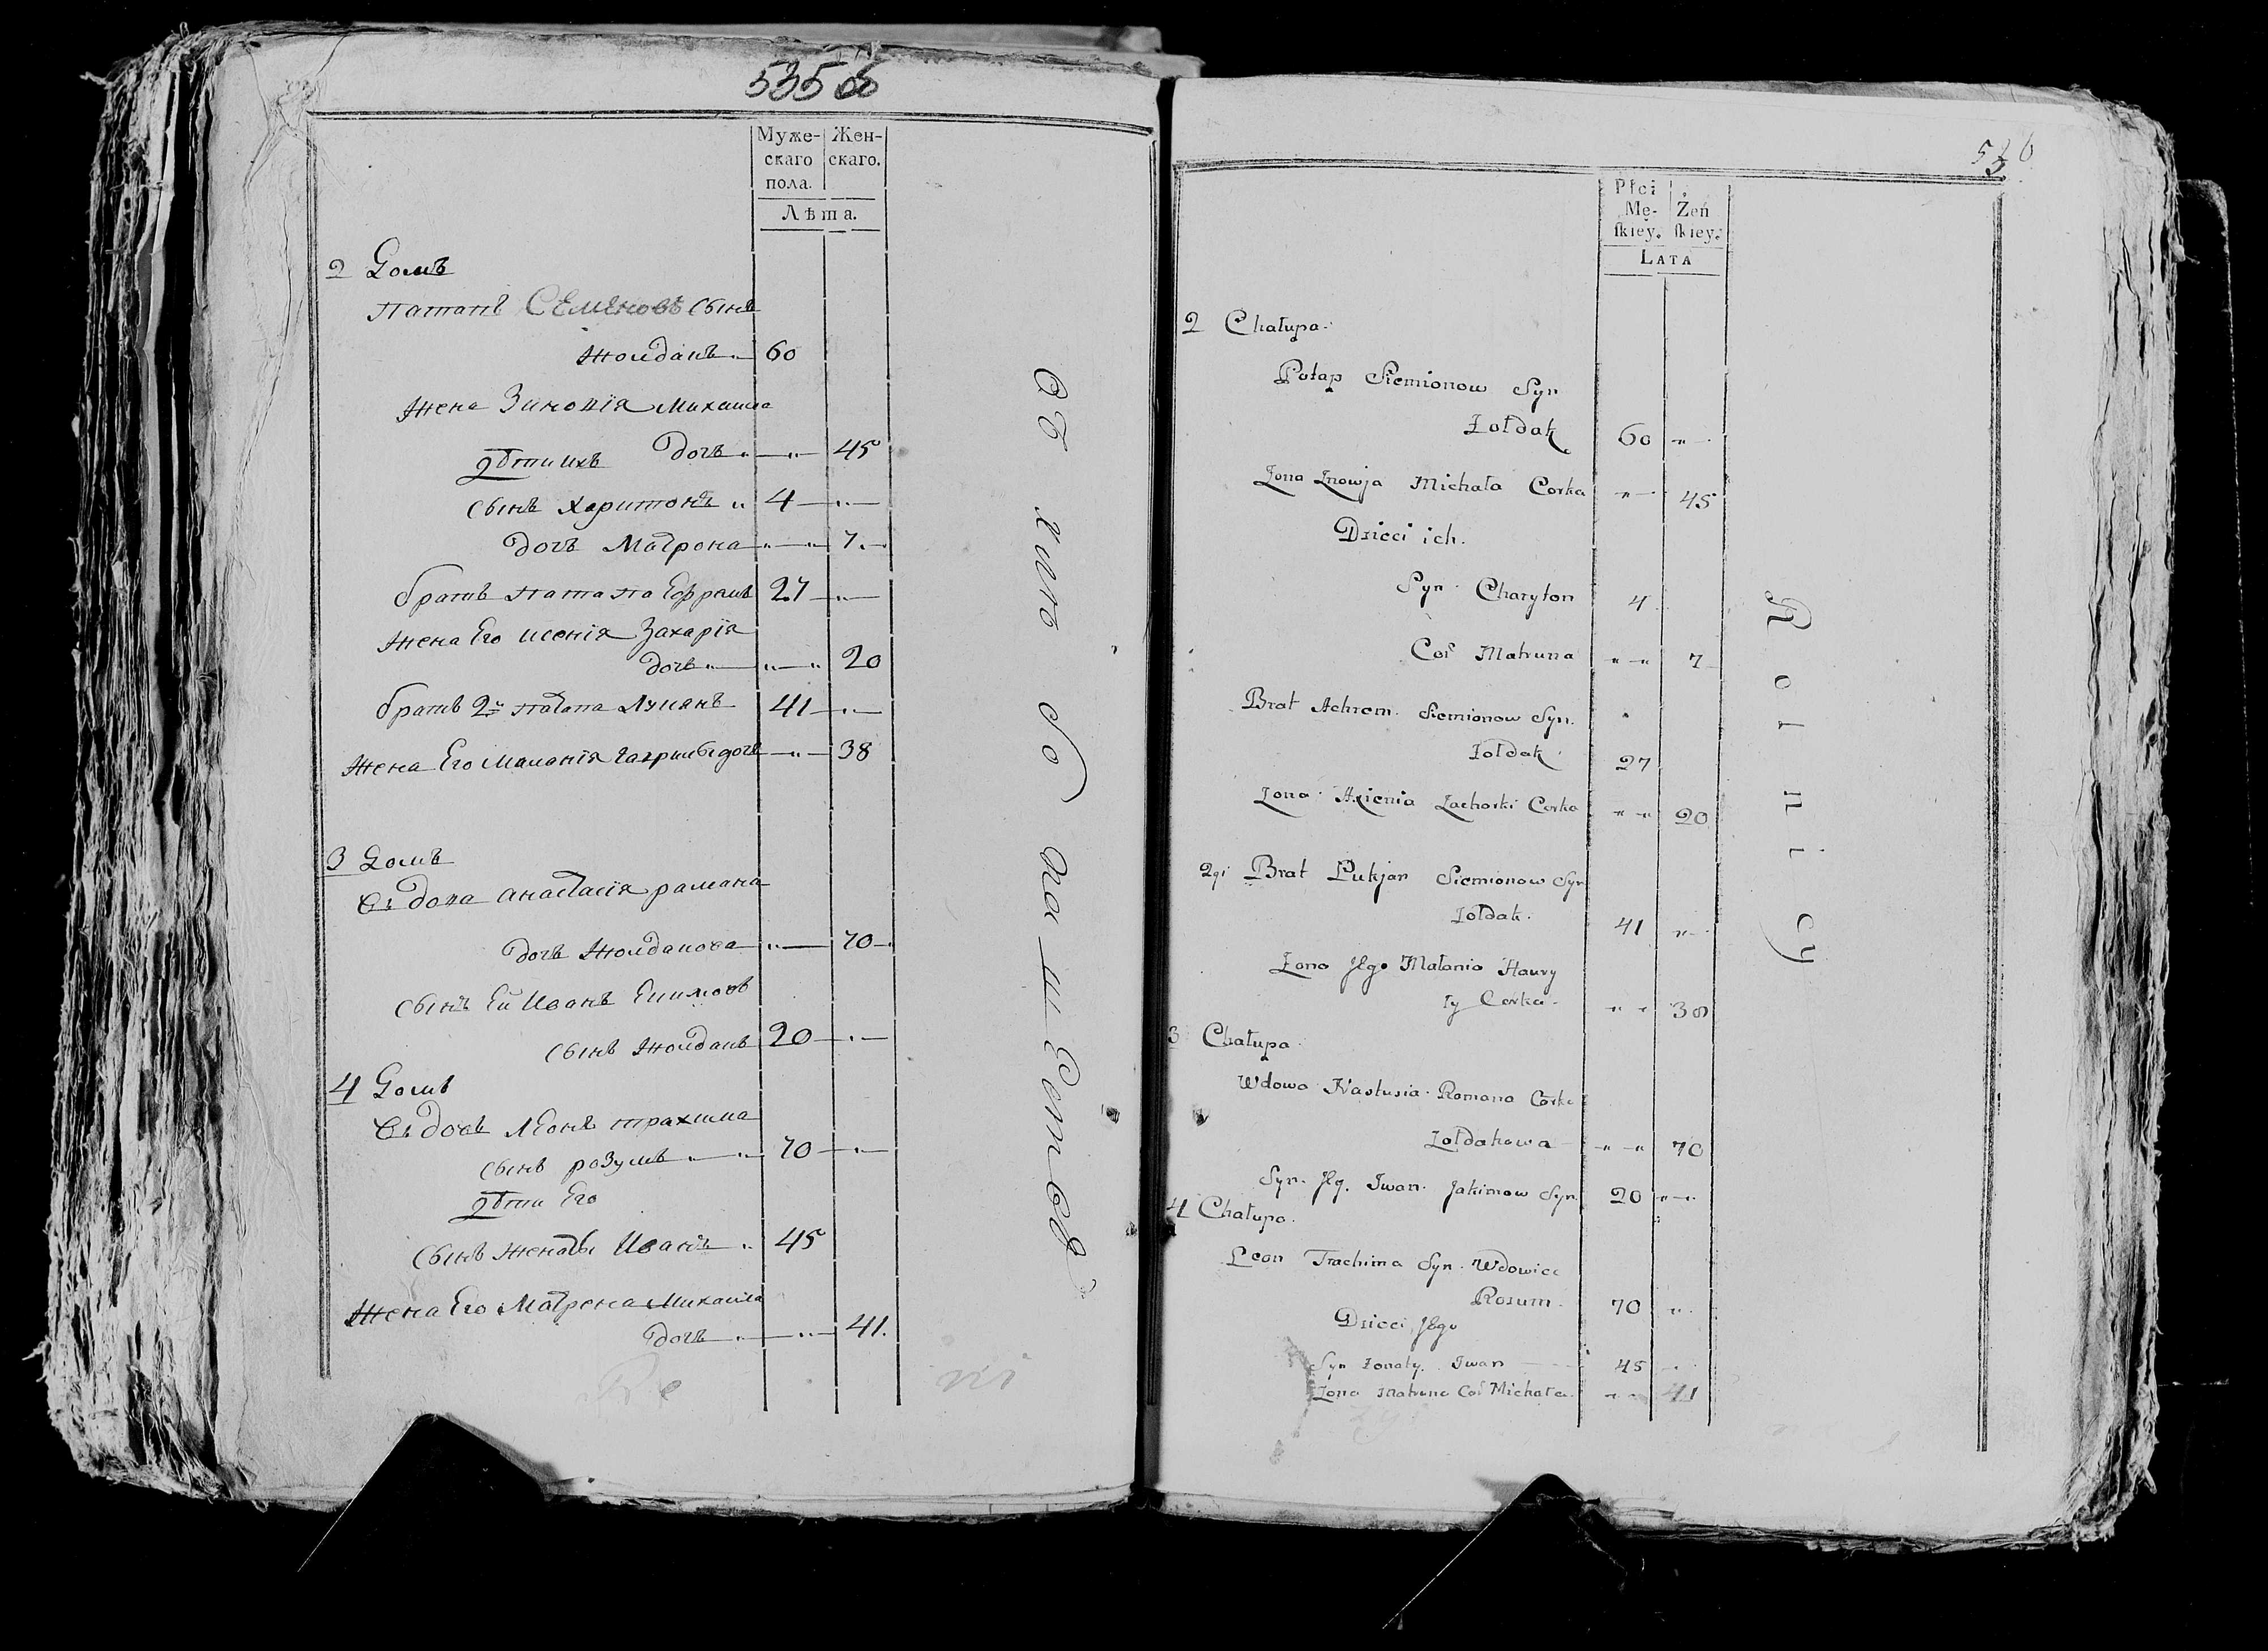 535 об
Муже-
скаго
пола.
Жен-
скаго.
Лѣта.
2 Домъ
Патапъ Семеновъ сынъ
Жолдакъ 60
Жена Зиновія Михаила
дочь 45
Дѣти ихъ
сынъ Харитонъ 4
дочь Матрона 7
братъ Патапа Ефремъ 27
Жена Его Ксенія Захарія
дочь 20
братъ 2й Патапа Лукянъ 41
Жена Его Маланія Гаврилы дочь 38
3 Домъ
Вдова Анастасія Рамана
дочь Жолдакова 70
сынъ Ей Иванъ Екимовъ
сынъ Жолдакъ 20
4 Домъ
Вдовъ Леонъ Трахима
сынъ Розумъ 70
Дѣти Его
сынъ Женаты Иванъ 45
Жена Его Матрена Михаила
дочь 41.
536
Płci
Mę-
ſkiey.
Żeń
ſkiey.
LATA
2 Chałupa
Potap Siemionow Syn
Żołdak 60
Żona Znowja Michała Corka 45
Dzieci ich.
Syn Charyton 4
Cor Matruna 7
Brat Achrem Siemionow Syn.
Żołdak 27
Żona Axienia Zacharki Corka 20
2gi Brat Łukjan Siemionow Syn
Żołdak. 41
Żona Jego Małania Haury
ły Corka 38
3 Chałupa
Wdowa Nastusia Romana Corka
Żołdakowa 70
Syn Jey. Iwan Jakimow Syn 20
4 Chałupa.
Leon Trachima Syn Wdowiec
Rozum. 70
Dzieci Jego
Syn Żonaty. Iwan 45
Żona Matruna Cor Michała 41
Rolnicy